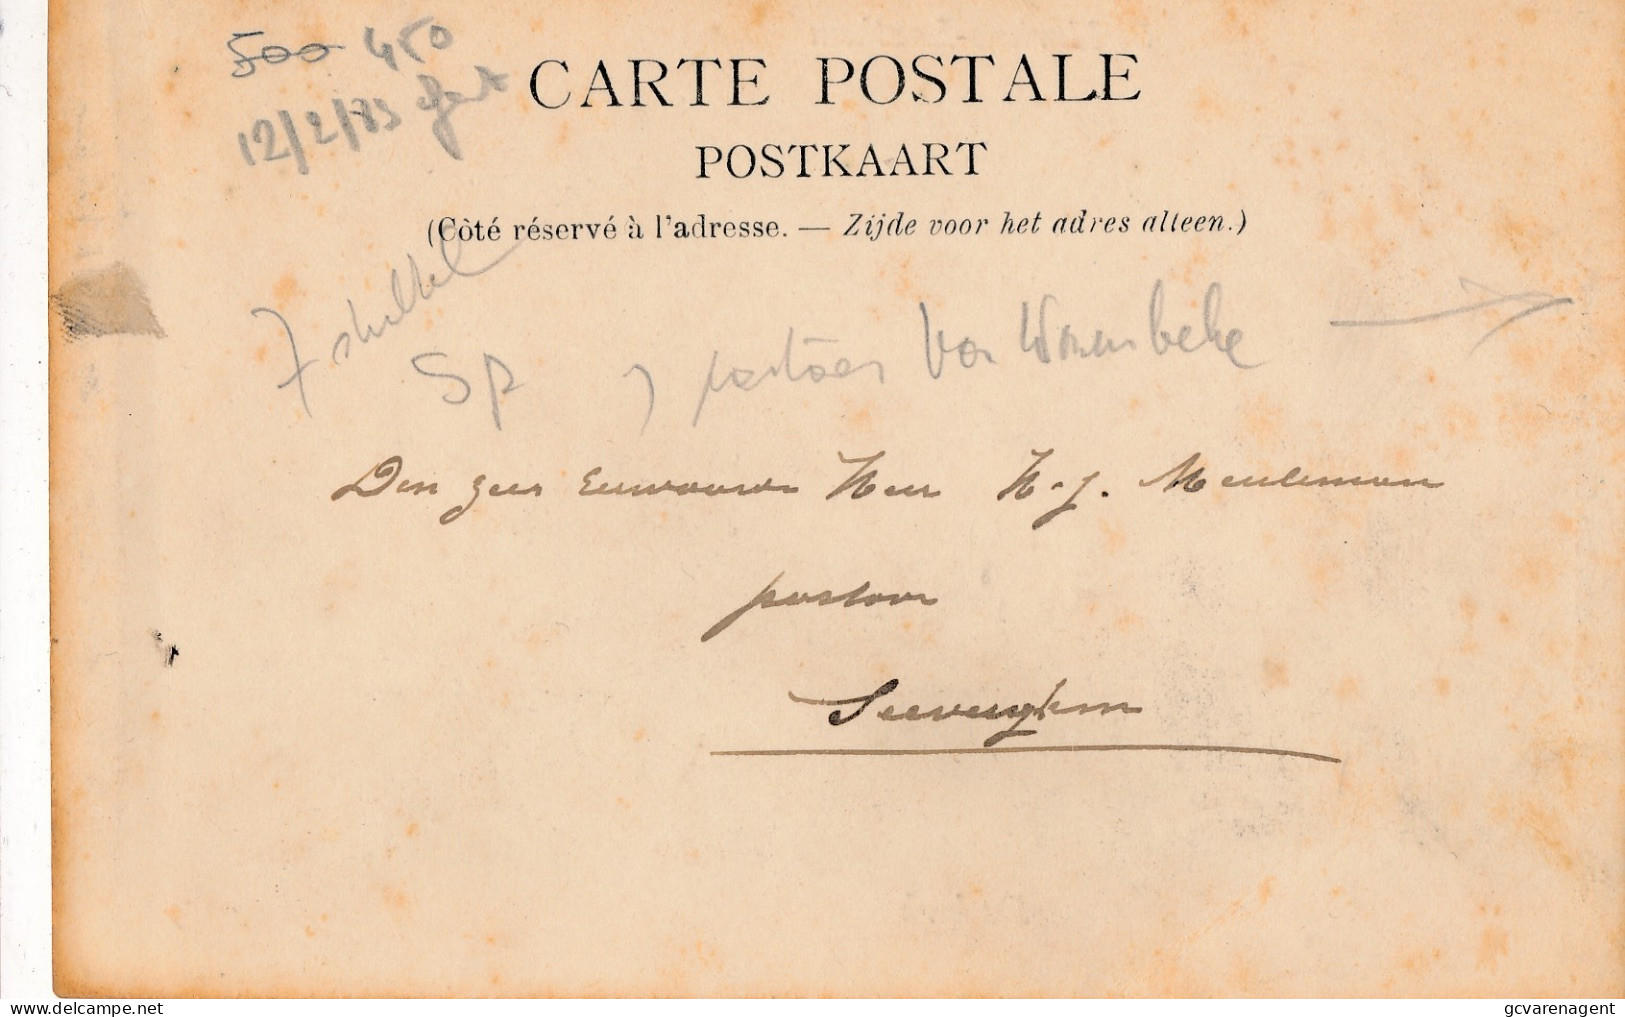 500 450
12/2/83 Gent
CARTE POSTALE
POSTKAART
(Côté réservé à l'adresse. — Zijde voor het adres alleen.)
SP pastoor Van Womersbeke
Den zeer Eerwaarde Heer H.J. Meuleman
pastoor
Seeverghem
gcvarenagent